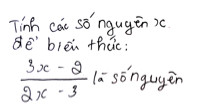 Tính các số nguyên x.
để biểu thức:
3x - 2
2x - 3 là số nguyên